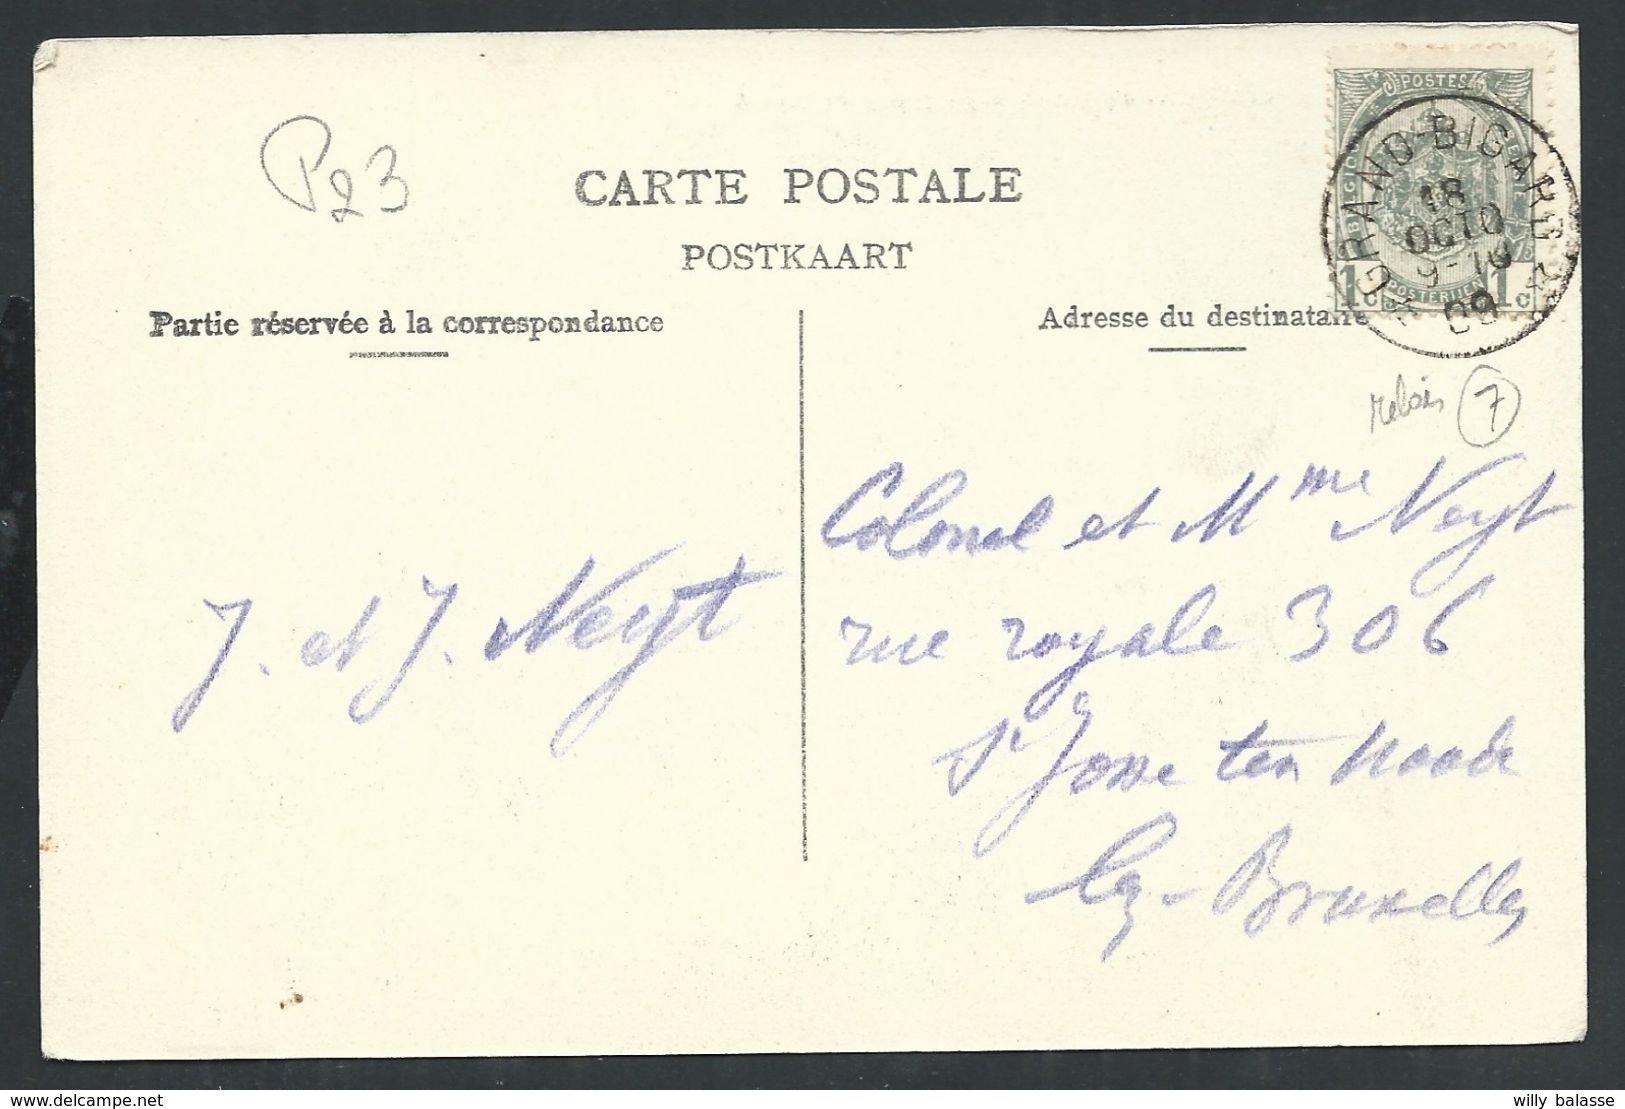 P23
CARTE POSTALE
POSTKAART
Partie réservée à la correspondance
Adresse du destinataire
POSTES
BELGIQUE
1c 1c
POSTERIJEN
GRAND-BIGARD
18
OCTO
9-10
09
relais 7
Colonel et Mme Neyt
rue royale 306
St Josse ten Noode
lez-Bruxelles
J. et J. Neyt
delcampe.net
willy balasse